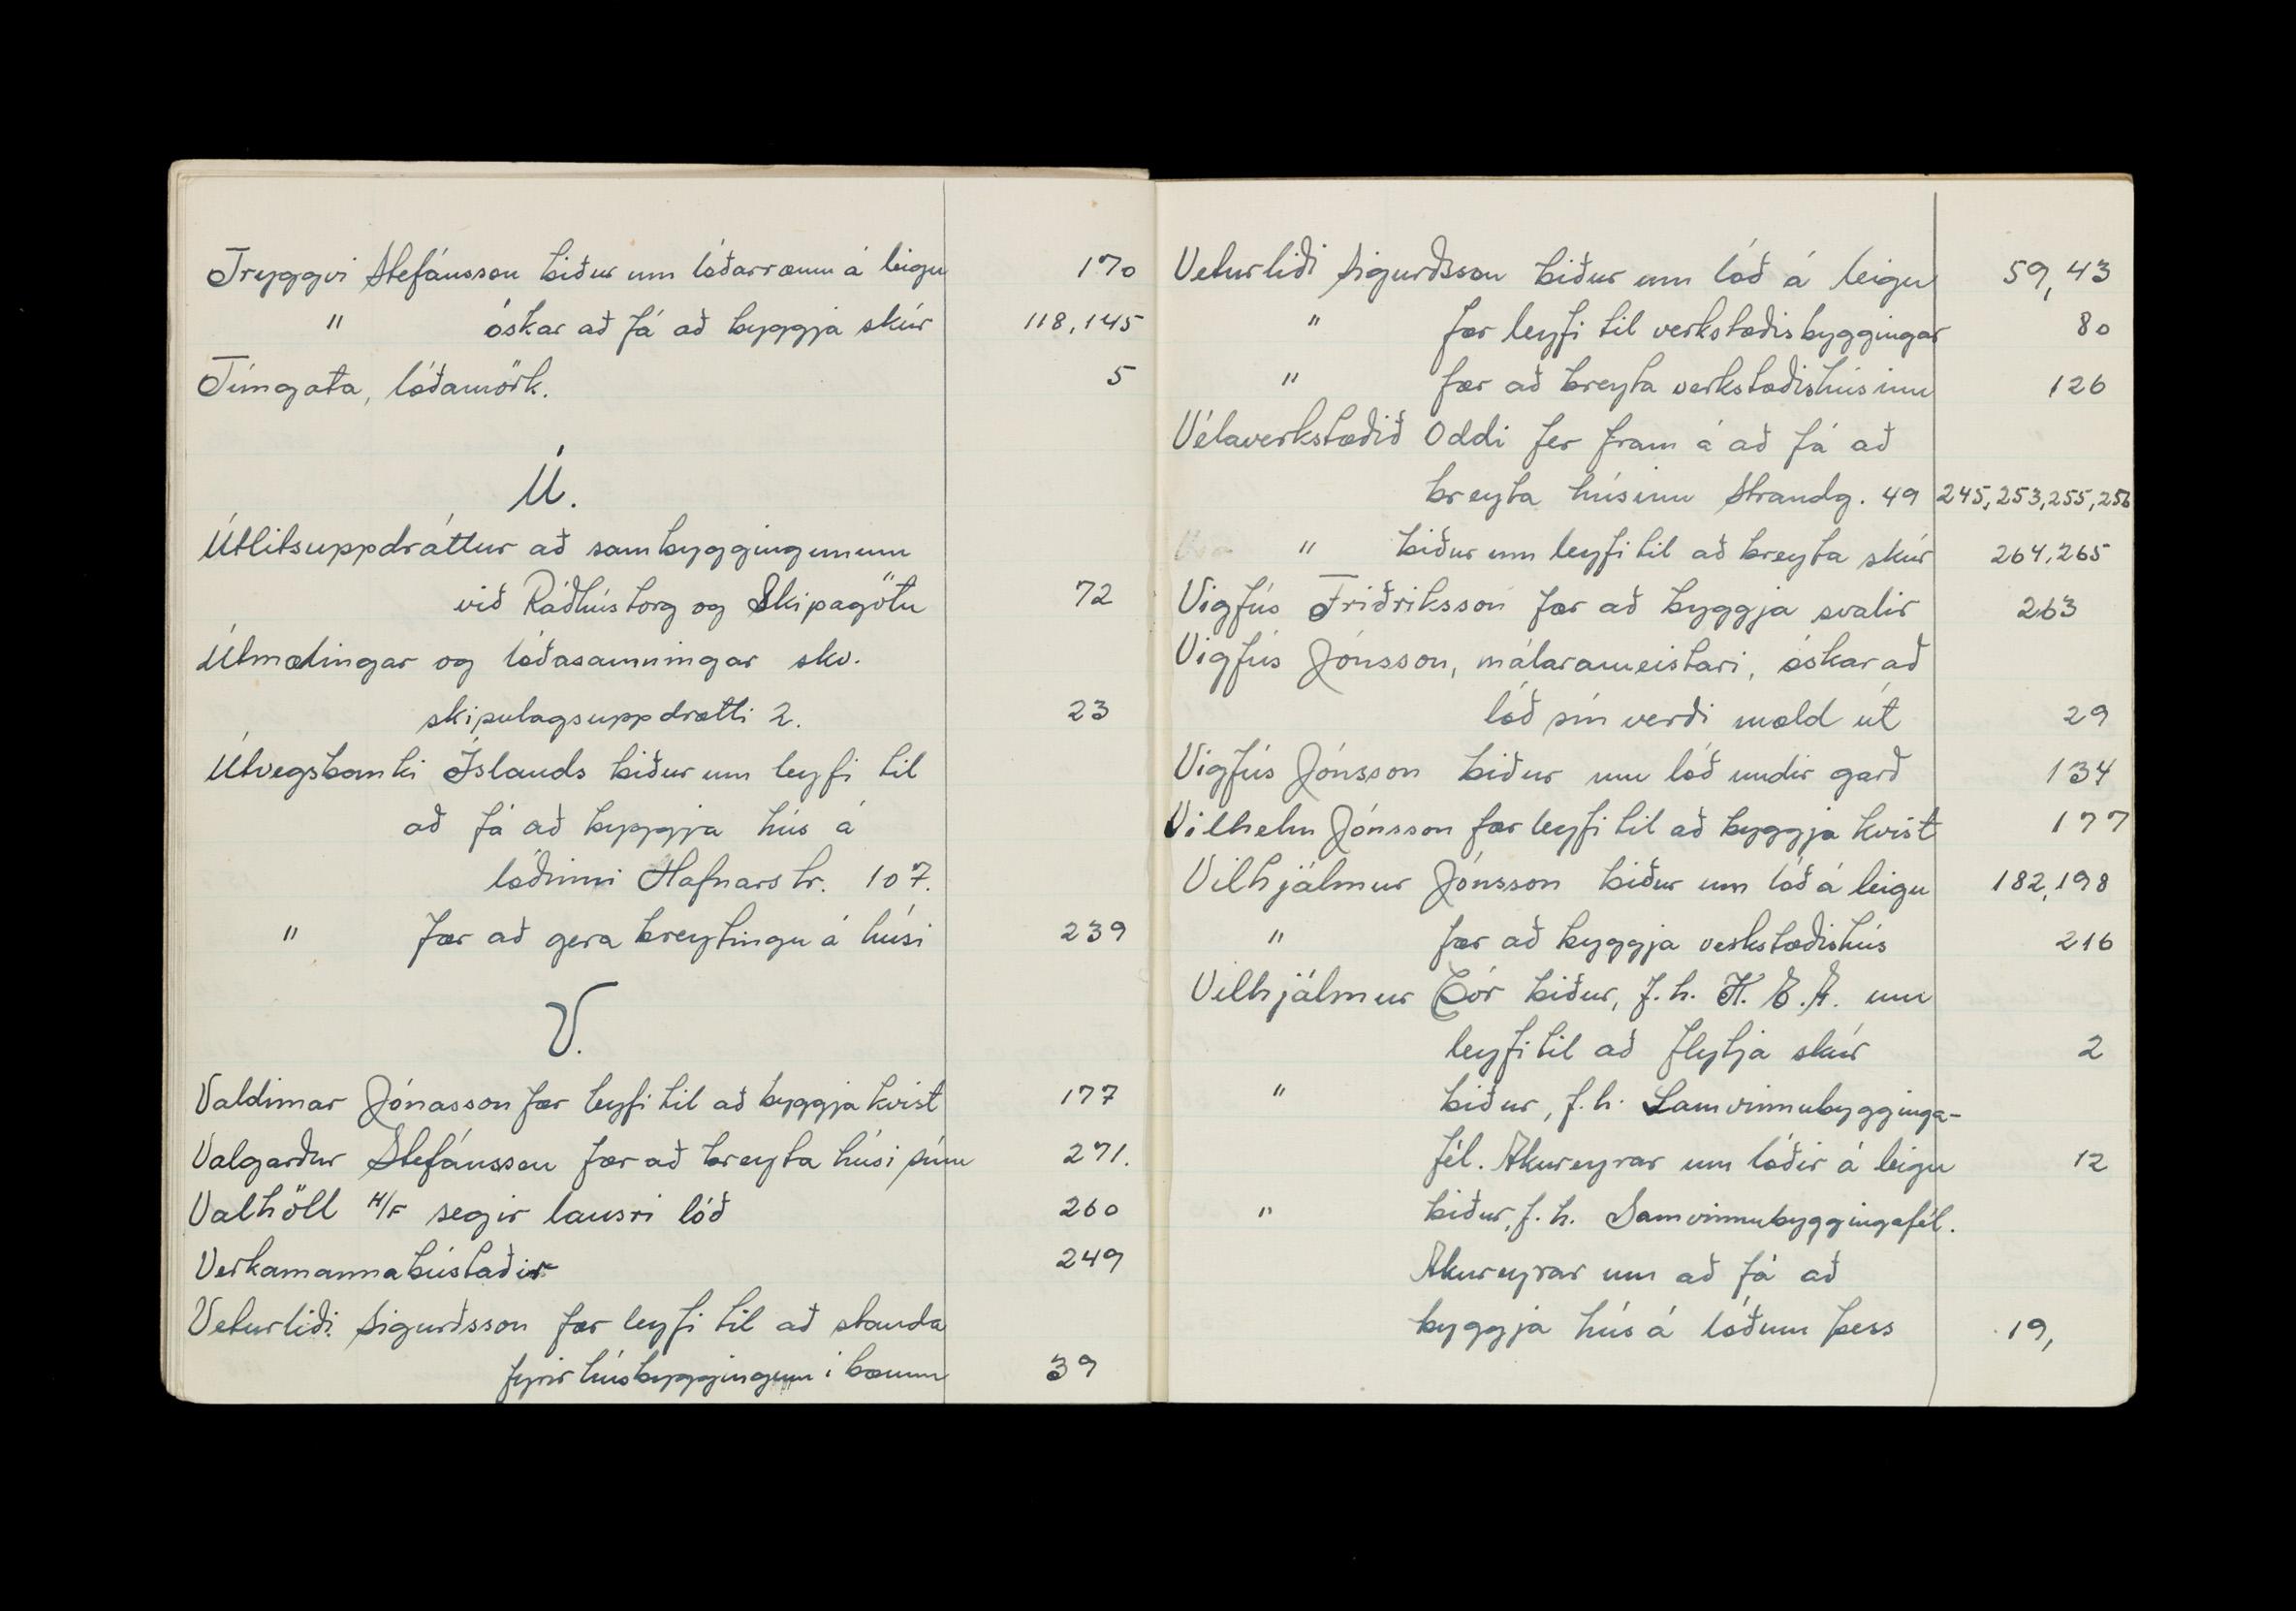 Tryggvi Stefánsson biður um lóðarræmu á leigu 170
" óskar að fá að byggja skúr 118,145
Túngata, lóðamörk. 5
Ú.
Útlitsuppdráttur að sambyggingunum
við Ráðhústorg og Skipagötu 72
Útmælingar og lóðasamningar skv.
skipulagsuppdrætti 2. 23
Útvegsbanki Íslands biður um leyfi til
að fá að byggja hús á
lóðinni Hafnarstr. 107.
" fær að gera breytingu á húsi 239
V.
Valdimar Jónasson fær leyfi til að byggja kvist 177
Valgarður Stefánsson fær að breyta húsi sínu 271.
Valhöll H/F segir lausri lóð 260
Verkamannabústaðir 249
Veturliði Sigurðsson fær leyfi til að standa
fyrir húsbyggingum í bænum 39
Veturliði Sigurðsson biður um lóð á leigu 59,43
" fær leyfi til verkstæðisbyggingar 80
" fær að breyta verkstæðishúsinu 126
Vélaverkstæðið Oddi fer fram á að fá að
breyta húsinu Strandg. 49 245,253,255,256
" biður um leyfi til að breyta skúr 264,265
Vigfús Friðriksson fær að byggja svalir 263
Vigfús Jónsson, málarameistari, óskar að
lóð sín verði mæld út 29
Vigfús Jónsson biður um lóð undir garð 134
Vilhelm Jónsson fær leyfi til að byggja kvist 177
Vilhjálmur Jónsson biður um lóð á leigu 182,198
" fær að byggja verkstæðishús 216
Vilhjálmur Þór biður, f.h. K.E.A. um
leyfi til að flytja skúr 2
" biður, f.h. Samvinnubygginga-
fél. Akureyrar um lóðir á leigu 12
" biður, f.h. Samvinnubyggingafél.
Akureyrar um að fá að
byggja hús á lóðum þess 19,